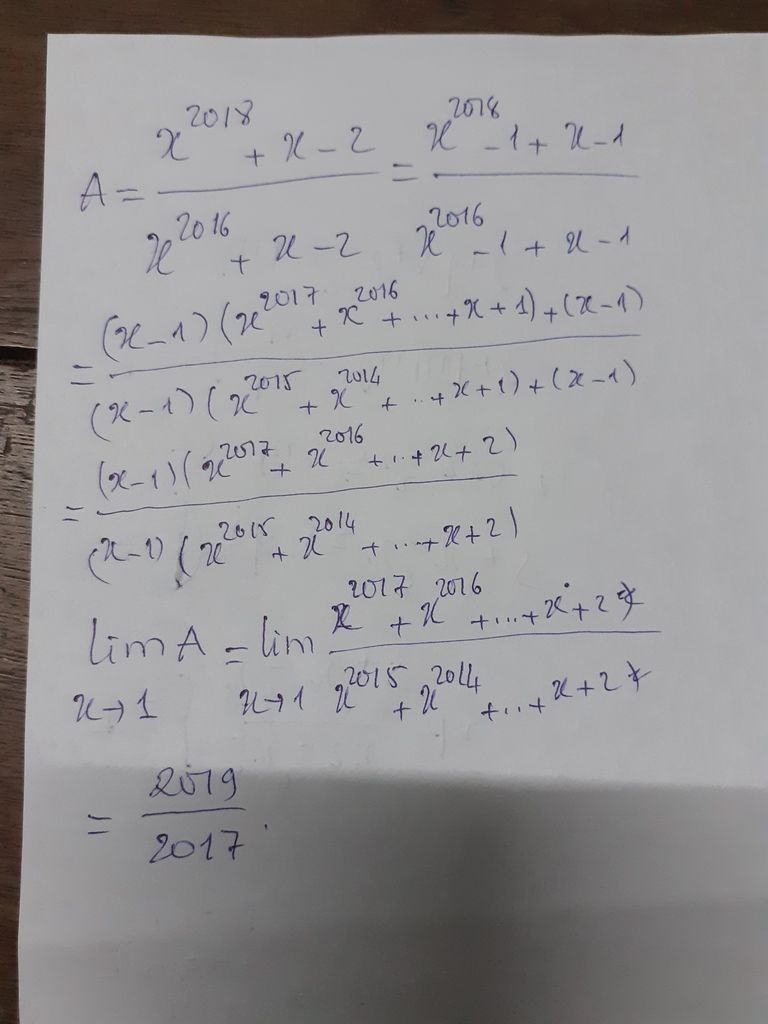 A = \frac{x^{2018} + x - 2}{x^{2016} + x - 2} = \frac{x^{2018} - 1 + x - 1}{x^{2016} - 1 + x - 1}
= \frac{(x-1)(x^{2017} + x^{2016} + ... + x + 1) + (x-1)}{(x-1)(x^{2015} + x^{2014} + ... + x + 1) + (x-1)}
= \frac{(x-1)(x^{2017} + x^{2016} + ... + x + 2)}{(x-1)(x^{2015} + x^{2014} + ... + x + 2)}
\lim_{x \to 1} A = \lim_{x \to 1} \frac{x^{2017} + x^{2016} + ... + x + 2}{x^{2015} + x^{2014} + ... + x + 2}
= \frac{2019}{2017}.